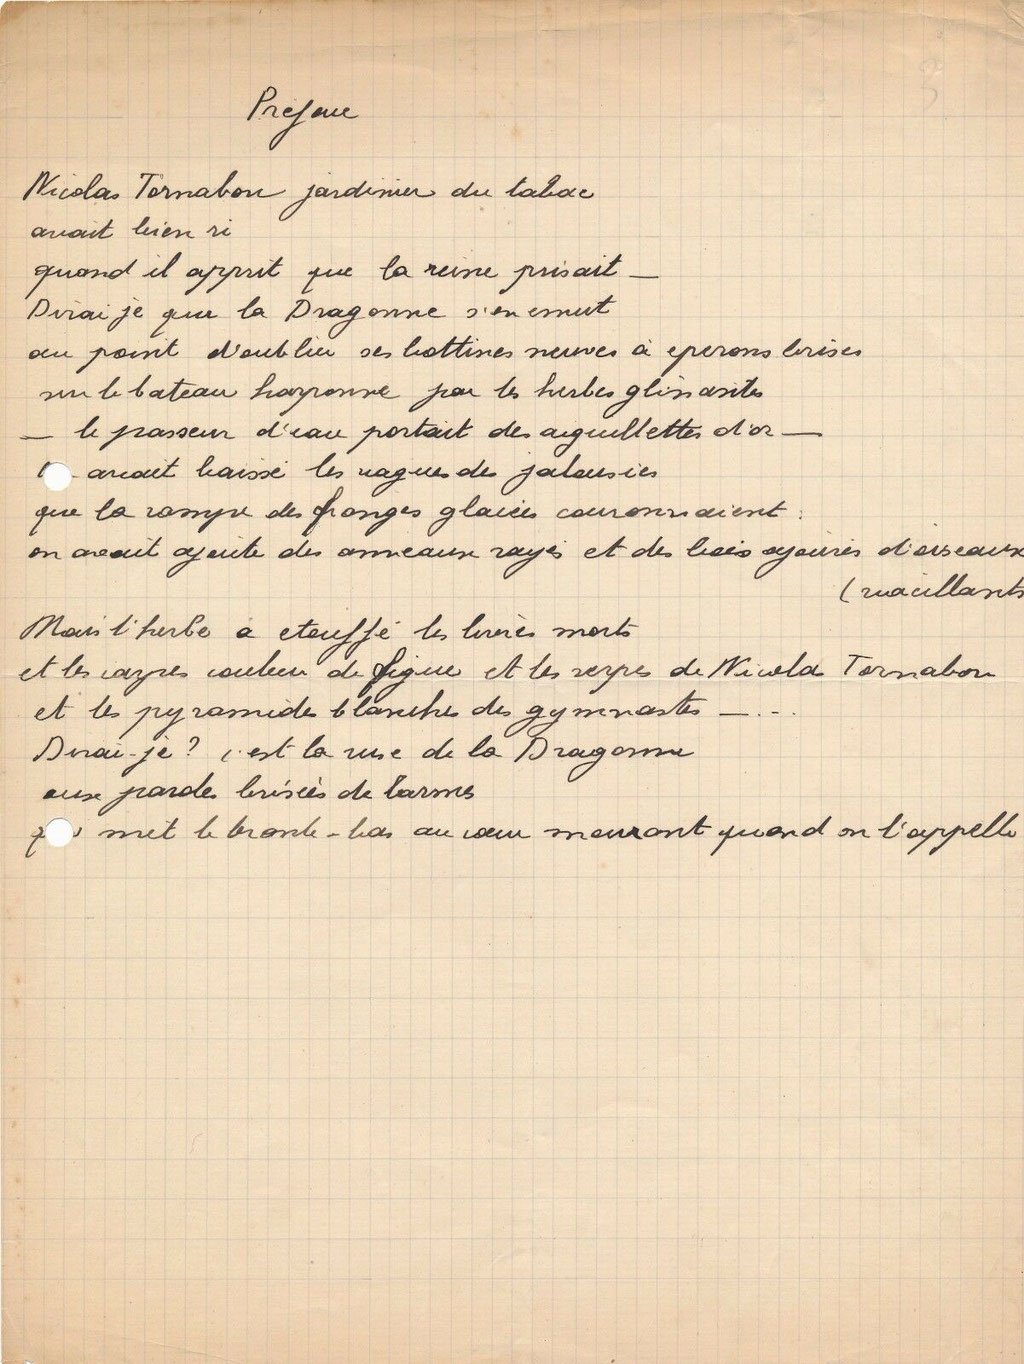 Préface
Nicolas Tornabou jardinier du tabac
avait bien ri
quand il apprit que la reine prisait —
Dirai je que la Dragonne s'en emut
au point d'oublier ses bottines neuves à eperons brisés
sur le bateau harponné par les herbes glissantes
— le passeur d'eau portait des aiguillettes d'or —
avait baissé les vagues des jalousies
que la rampe des franges glacées couronnaient.
on avait ajouté des anneaux rayés et des bois ajourés d'oiseaux
(vacillants
Mais l'herbe a etouffé les livrées morts
et les carpes couleur de figue et les serpes de Nicolas Tornabou
et les pyramides blanches des gymnastes — . - .
Dirai-je? c'est la ruse de la Dragonne
aux paroles brisées de larmes
met le branle-bas au cœur mourant quand on l'appelle